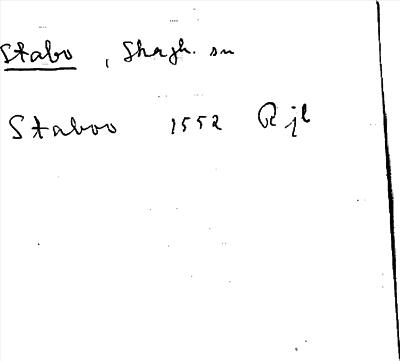 Stabo, Skagh. sn
Staboo 1552 Rjb